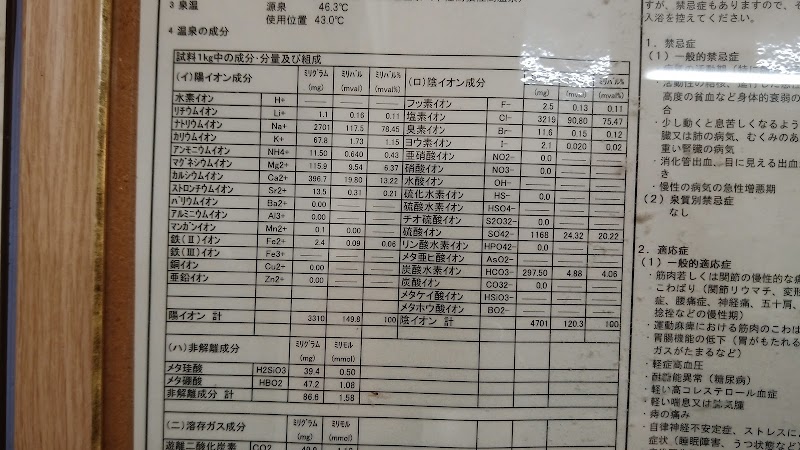 3 泉温 源泉 46.3℃
使用位置 43.0℃
4 温泉の成分
試料1kg中の成分・分量及び組成
(イ)陽イオン成分 ミリグラム(mg) ミリバル(mval) ミリバル%(mval%)
水素イオン H+
リチウムイオン Li+ 1.1 0.16 0.11
ナトリウムイオン Na+ 2701 117.5 78.45
カリウムイオン K+ 67.8 1.73 1.15
アンモニウムイオン NH4+ 11.50 0.640 0.43
マグネシウムイオン Mg2+ 115.9 9.54 6.37
カルシウムイオン Ca2+ 396.7 19.80 13.22
ストロンチウムイオン Sr2+ 13.5 0.31 0.21
バリウムイオン Ba2+ 0.00
アルミニウムイオン Al3+ 0.00
マンガンイオン Mn2+ 0.1 0.00 0.00
鉄(Ⅱ)イオン Fe2+ 2.4 0.09 0.06
鉄(Ⅲ)イオン Fe3+
銅イオン Cu2+ 0.00
亜鉛イオン Zn2+ 0.00
陽イオン 計 3310 149.8 100
(ロ)陰イオン成分 (mg) (mval) ミリバル%(mval%)
フッ素イオン F- 2.5 0.13 0.11
塩素イオン Cl- 3219 90.80 75.47
臭素イオン Br- 11.6 0.15 0.12
ヨウ素イオン I- 2.1 0.020 0.02
亜硝酸イオン NO2- 0.0
硝酸イオン NO3- 0.0
水酸イオン OH-
硫化水素イオン HS- 0.0
硫酸水素イオン HSO4-
チオ硫酸イオン S2O32- 0.0
硫酸イオン SO42- 1168 24.32 20.22
リン酸水素イオン HPO42- 0.0
メタ亜ヒ酸イオン AsO2-
炭酸水素イオン HCO3- 297.50 4.88 4.06
炭酸イオン CO32- 0.0
メタケイ酸イオン HSiO3-
メタホウ酸イオン BO2-
陰イオン 計 4701 120.3 100
(ハ)非解離成分 ミリグラム(mg) ミリモル(mmol)
メタ珪酸 H2SiO3 39.4 0.50
メタ硼酸 HBO2 47.2 1.08
非解離成分 計 86.6 1.58
(ニ)溶存ガス成分 ミリグラム(mg) ミリモル(mmol)
遊離二酸化炭素 CO2
すが、禁忌症もありますので、そ
入浴を控えてください。
1. 禁忌症
(1) 一般的禁忌症
高度の貧血など身体的衰弱の
合
・少し動くと息苦しくなるよう
臓又は肺の病気、むくみのあ
重い腎臓の病気
・消化管出血、目に見える出血
き
・慢性の病気の急性増悪期
(2) 泉質別禁忌症
なし
2. 適応症
(1) 一般的適応症
・筋肉若しくは関節の慢性的な
こわばり(関節リウマチ、変形
症、腰痛症、神経痛、五十肩、
捻挫などの慢性期)
・運動麻痺における筋肉のこわば
・胃腸機能の低下(胃がもたれる
ガスがたまるなど)
・軽症高血圧
・耐糖能異常(糖尿病)
・軽い高コレステロール血症
・軽い喘息又は肺気腫
・痔の痛み
・自律神経不安定症、ストレスによ
症状(睡眠障害、うつ状態など)